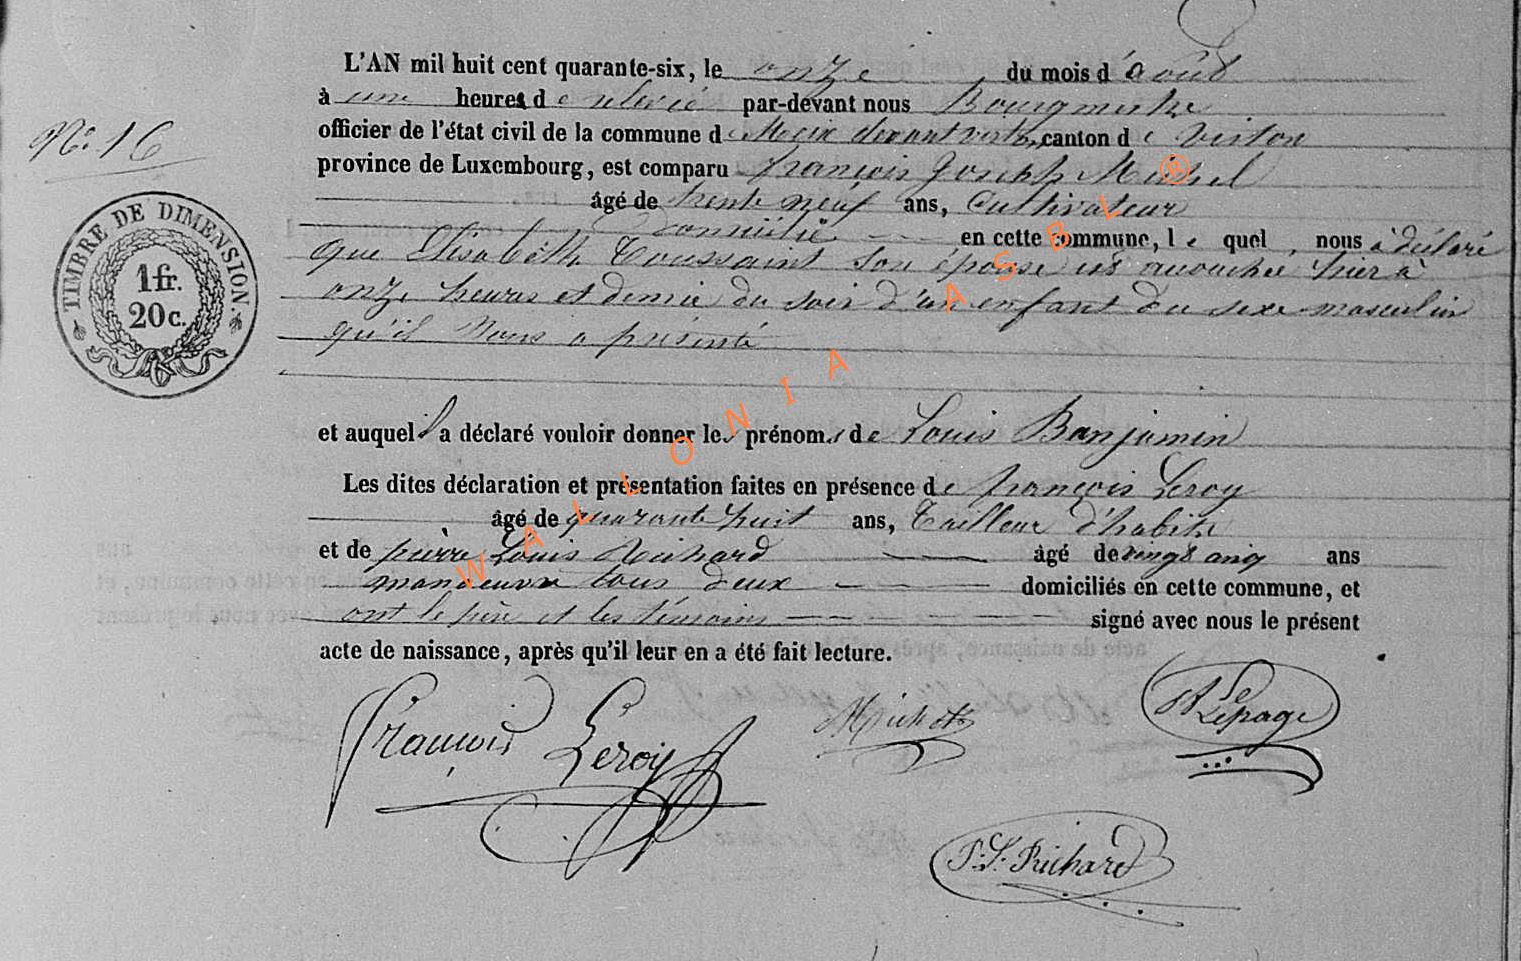 L'AN mil huit cent quarante-six, le onze du mois d'août
à une heure de relevée par-devant nous Bourgmestre
officier de l'état civil de la commune de Meix devant virton, canton de virton
N° 16
province de Luxembourg, est comparu françois Joseph Michel
âgé de trente neuf ans, Cultivateur
domicilié en cette commune, le quel nous a déclaré
que Elisabeth Toussaint son épouse est accouchée hier à
onze heures et demie du soir d'un enfant du sexe masculin
qu'il Nous a présenté
TIMBRE DE DIMENSION.
1 fr.
20 c.
et auquel il a déclaré vouloir donner les prénoms de Louis Banjamin
Les dites déclaration et présentation faites en présence de françois Leroy
âgé de quarante huit ans, Tailleur d'habits
et de pierre Louis Richard âgé de vingt cinq ans
manoeuvre tous deux domiciliés en cette commune, et
ont le père et les témoins signé avec nous le présent
acte de naissance, après qu'il leur en a été fait lecture.
François Leroy
Lepage
P. L. Richard
WALLONIA ASBL ®